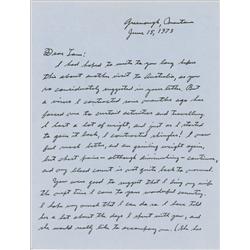 Greenough, Montana
June 15, 1973
Dear Ian:
I had hoped to write to you long before
this about another visit to Australia, as you
so considerately suggested in your letter. But
a virus I contracted some months ago has
forced me to curtail activities and travelling.
I lost a lot of weight, and just as I started
to gain it back, I contracted shingles! I now
feel much better, and am gaining weight again,
but chest pains - although diminishing - continue,
and my blood count is not quite back to normal.
You were good to suggest that I bring my wife
the next time I come to your wonderful country.
I hope very much that I can do so. I have told
her a lot about the days I spent with you, and
she would really like to accompany me. (She has